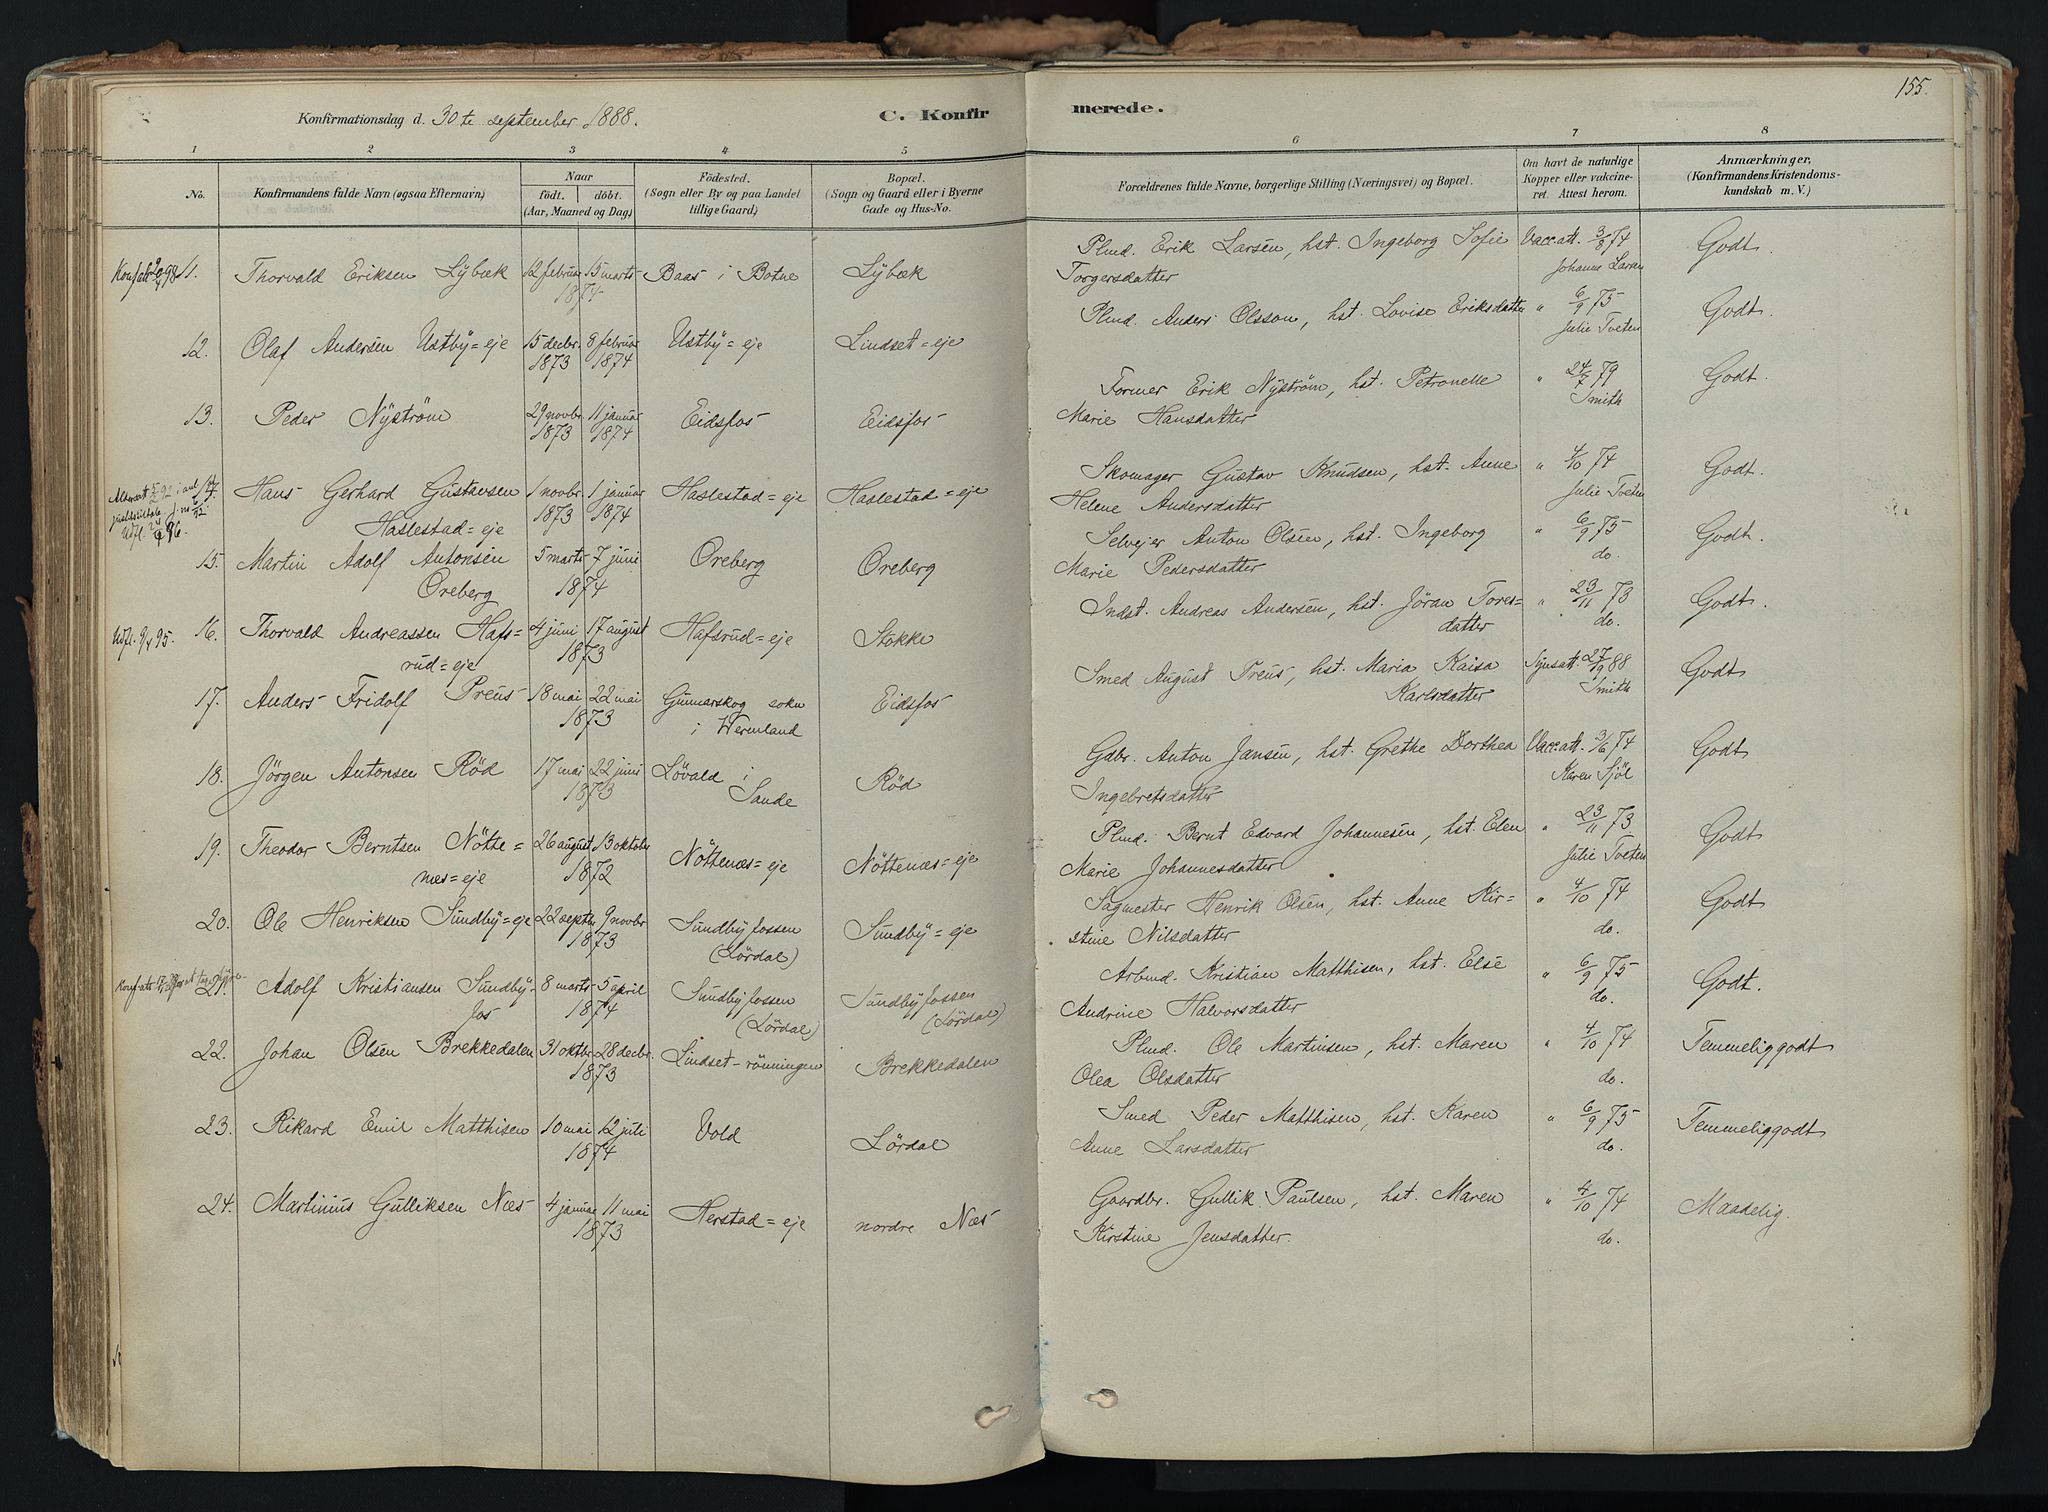 155.
Konfirmationsdag d. 30te september 1888.
C. Konfirmerede.
1 2 3 4 5 6 7 8
No.
Konfirmandens fulde Navn (ogsaa Efternavn)
Naar
født. døbt.
(Aar, Maaned og Dag)
Fødested.
(Sogn eller By og paa Landet
tillige Gaard)
Bopæl.
(Sogn og Gaard eller i Byerne
Gade og Hus-No.
Forældrenes fulde Navne, borgerlige Stilling (Næringsvei) og Bopæl.
Om havt de naturlige
Kopper eller vakcine-
ret. Attest herom.
Anmærkninger,
(Konfirmandens Kristendoms-
kundskab m. V.)
11. Thorvald Eriksen Lÿbæk 12 februar 15 marts Baas i Botne Lÿbæk
1874
Plmd. Erik Larsen, hst. Ingeborg Sofie Vacc. att. 3/8 74 Godt.
Torgersdatter Johanne Larsen
12. Olaf Andersen Ustbÿ=eje 15 decbr. 8 februar Ustbÿ=eje Lindset=eje
1873 1874
Plmd. Anders Olsson, hst. Lovise Eriksdatter " 6/9 75 Godt.
Julie Tveten
13. Peder Nÿström 29 novbr. 11 januar Eidsfos Eidsfos
1873 1874
Former Erik Nÿström, hst. Petronelle " 24/7 79 Godt.
Marie Hansdatter Smith
14. Hans Gerhard Gustavsen 1 novbr. 1 januar Haslestad=eje Haslestad=eje
Haslestad=eje 1873 1874
Skomager Gustav Knudsen, hst. Anne " 4/10 74 Godt.
Helene Andersdatter Julie Tveten
15. Martin Adolf Antonsen 5 marts 7 juni Oreberg Oreberg
Oreberg 1874
Selvejer Anton Olsen, hst. Ingeborg " 6/9 75 Godt.
Marie Pedersdatter do.
Udfl. 9/4 95. 16. Thorvald Andreassen Hafs= 4 juni 17 august Hafsrud=eje Stokke
rud=eje 1873
Indst. Andreas Andersen, hst. Jöran Tores= " 23/11 73 Godt.
datter do.
17. Anders Fridolf Preus 18 mai 22 mai Gunnarskog sokn Eidsfos
1873 i Wermland
Smed August Preus, hst. Maria Kaisa Synsatt. 27/9 88 Godt
Karlsdatter Smith
18. Jörgen Antonsen Röd 17 mai 22 juni Lövald i Röd
1873 Sande
Gdbr. Anton Jansen, hst. Grethe Dorthea Vacc. att. 3/6 74 Godt
Ingebretsdatter Karen Sjöl
19. Theodor Berntsen Nötte= 26 august 13 oktober Nöttenæs=eje Nöttenæs=eje
næs=eje 1872
Plmd. Bernt Edvard Johannesen, hst. Elen " 23/11 73 Godt
Marie Johannesdatter Julie Tveten
20. Ole Henriksen Sundbÿ=eje 22 septbr 9 novbr Sundbÿfossen Sundbÿ=eje
1873 (Lördal)
Sagmester Henrik Olsen, hst. Anne Kir= " 4/10 74 Godt
stine Nilsdatter do.
21. Adolf Kristiansen Sundbÿ- 8 marts 5 april Sundbÿfossen Sundbÿfossen
fos 1874 (Lördal) (Lördal)
Arbmd. Kristian Matthisen, hst. Else " 6/9 75 Godt.
Andrine Halvorsdatter do.
22. Johan Olsen Brekkedalen 31 oktbr. 28 decbr. Lindset-rönningen Brekkedalen
1873
Plmd. Ole Martinsen, hst. Maren " 4/10 74 Temmeliggodt
Olea Olsdatter do.
23. Rikard Emil Matthisen 10 mai 12 juli Vold Lördal
1874
Smed Peder Matthisen, hst. Karen " 6/9 75 Temmeliggodt
Anne Larsdatter do.
24. Martinius Gulliksen Næs 4 januar 11 mai Herstad=eje nordre Næs
1873
Gaardbr. Gullik Paulsen, hst. Maren " 4/10 74 Maadelig.
Kirstine Jensdatter. do.